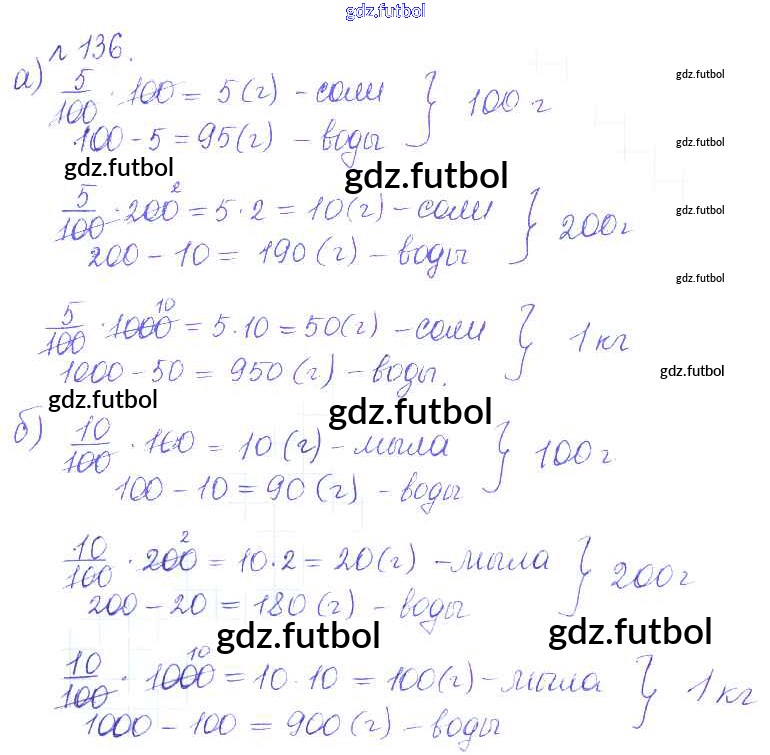 gdz.futbol
№ 136.
а) 5/100 · 100 = 5 (г) - соли } 100 г
gdz.futbol
100 - 5 = 95 (г) - воды
gdz.futbol
gdz.futbol
gdz.futbol
5/100 · 200 2 = 5 · 2 = 10 (г) - соли } 200 г
gdz.futbol
200 - 10 = 190 (г) - воды
gdz.futbol
5/100 · 1000 10 = 5 · 10 = 50 (г) - соли } 1 кг
1000 - 50 = 950 (г) - воды.
gdz.futbol
gdz.futbol
gdz.futbol
б) 10/100 · 100 = 10 (г) - мыла } 100 г
100 - 10 = 90 (г) - воды
10/100 · 200 2 = 10 · 2 = 20 (г) - мыла } 200 г
200 - 20 = 180 (г) - воды
gdz.futbol
gdz.futbol
10/100 · 1000 10 = 10 · 10 = 100 (г) - мыла } 1 кг
1000 - 100 = 900 (г) - воды